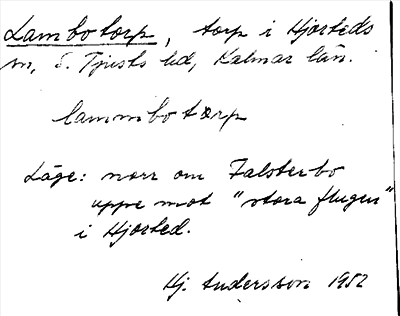 Lambotorp, torp i Hjorteds
sn, S. Tjusts hd, Kalmar län.
lammbotørp
Läge: norr om Falsterbo
uppe mot "stora flugen"
i Hjorted.
Hj. Andersson 1952